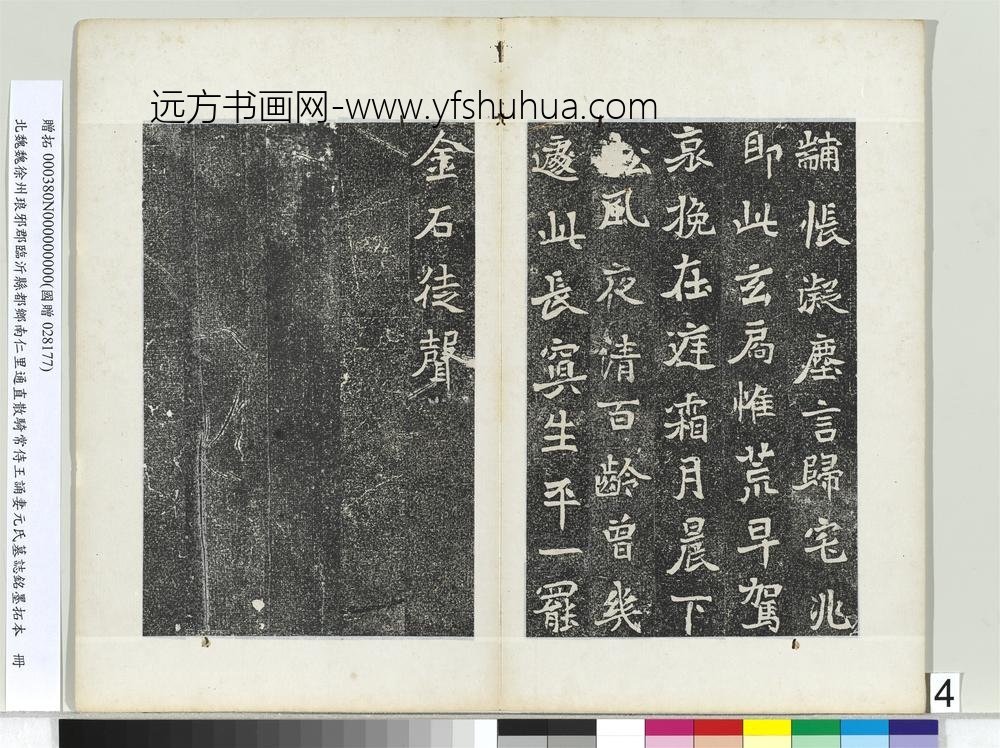 远方书画网-www.yfshuhua.com
黼帳凝塵言歸宅兆
即此玄扃惟荒早駕
哀挽在庭霜月晨下
松風夜清百齡曾幾
遽此長寘生平一罷
金石徒聲
贈拓 000380N000000000(國贈 028177)
北魏魏徐州琅邪郡臨沂縣都鄉南仁里通直散騎常侍王誦妻元氏墓誌銘墨拓本 冊
4